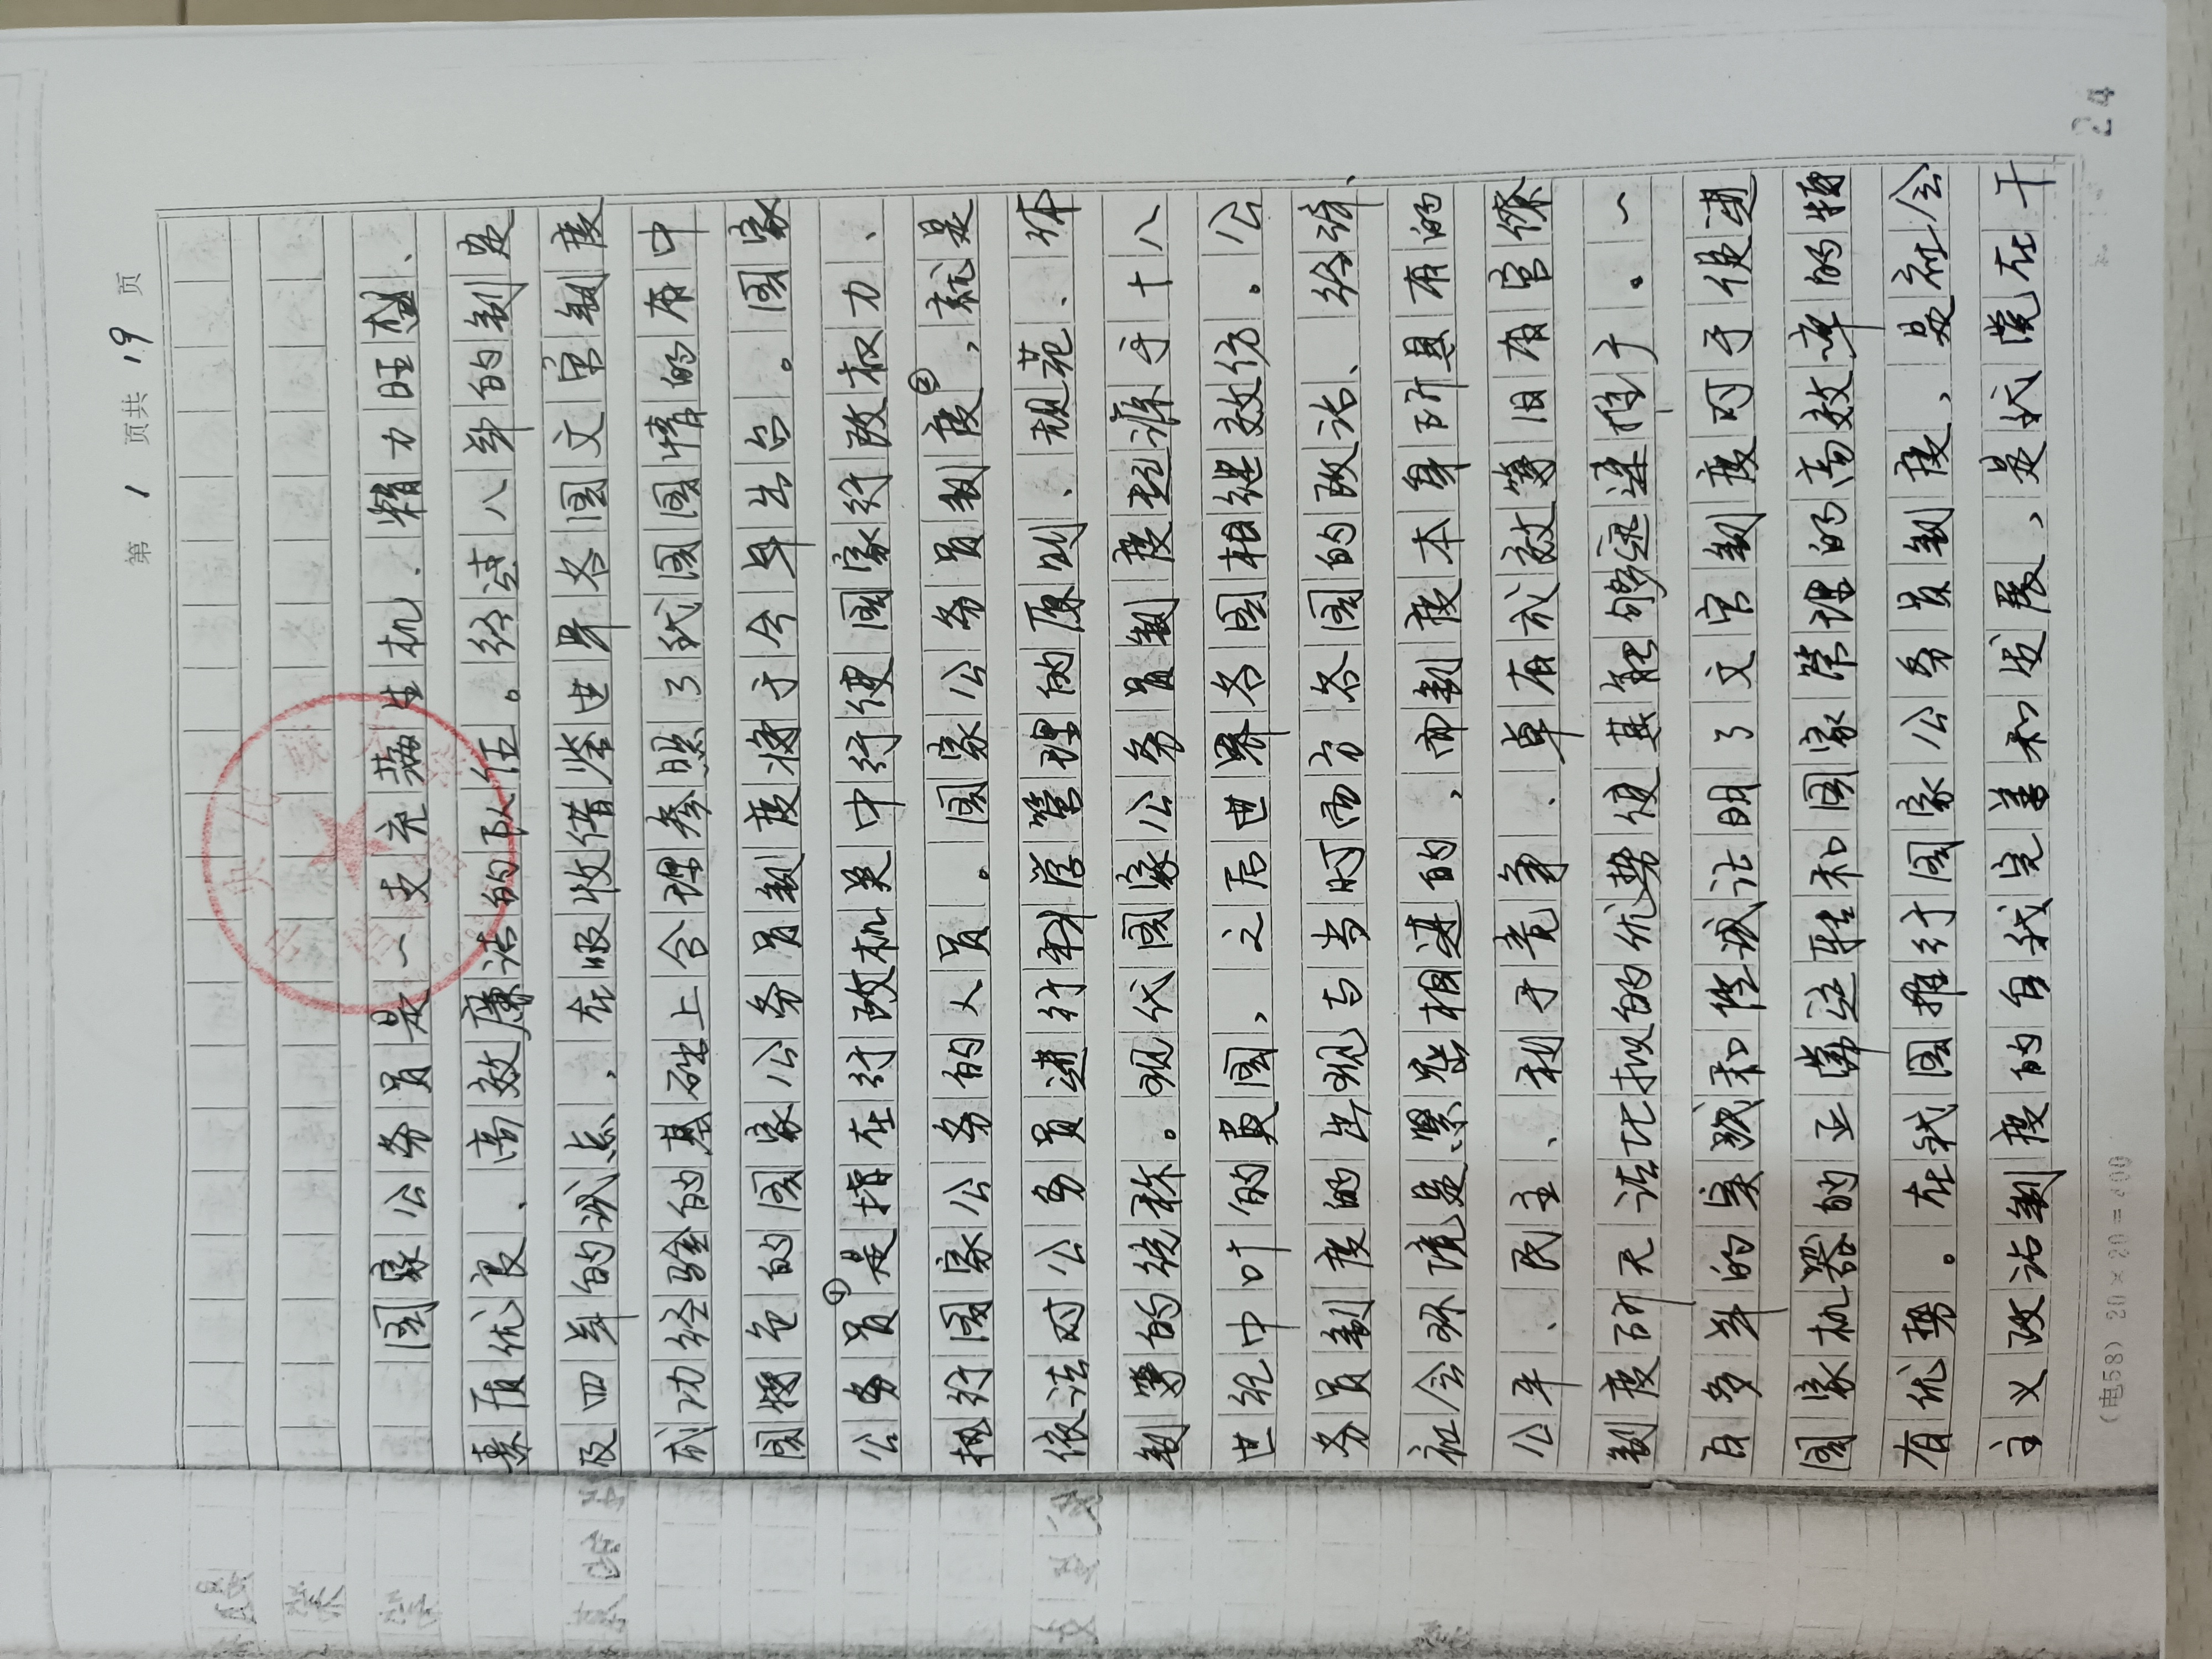 第 1 页共 19 页
国家公务员是一支充满生机、精力旺盛、
素质优良、高效廉洁的队伍。经过八年的制定
及四年的试点,在吸收借鉴世界各国文官制度
成功经验的基础上合理参照了我国国情的有中
国特色的国家公务员制度将于今年出台。国家
公务员①是指在行政机关中行使国家行政权力、
执行国家公务的人员。国家公务员制度②,就是
依法对公务员进行科学管理的原则、规范、体
制等的统称。现代国家公务员制度起源于十八
世纪中叶的英国,之后世界各国相继效仿。公
务员制度的出现与当时西方各国的政治、经济、
社会环境是紧密相连的,而制度本身所具有的
公平、民主、利于竞争、卓有成效等旧有官僚
制度所无法比拟的优势使其能够迅速推广。一
百多年的实践和尝试证明了文官制度对于促进
国家机器的正常运转和国家管理的高效率的独
有优势。在我国推行国家公务员制度,是社会
主义政治制度的自我完善和发展,是我党在干
(电58) 20×20=400
24